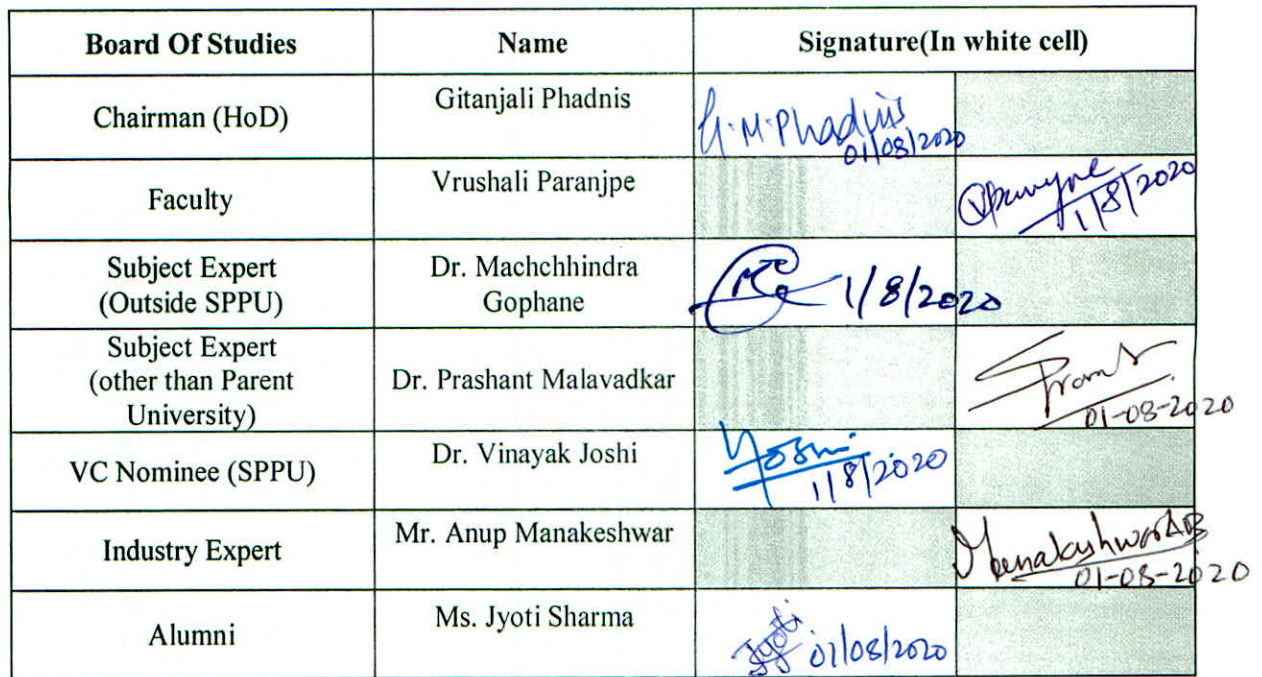 Board Of Studies Name Signature(In white cell)
Chairman (HoD) Gitanjali Phadnis G.M.Phadnis
01/08/2020
Faculty Vrushali Paranjpe
1/8/2020
Subject Expert
(Outside SPPU)
Dr. Machchhindra
Gophane
1/8/2020
Subject Expert
(other than Parent
University)
Dr. Prashant Malavadkar
01-08-2020
VC Nominee (SPPU) Dr. Vinayak Joshi Joshi
1/8/2020
Industry Expert Mr. Anup Manakeshwar
01-08-2020
Alumni Ms. Jyoti Sharma Jyoti 01/08/2020